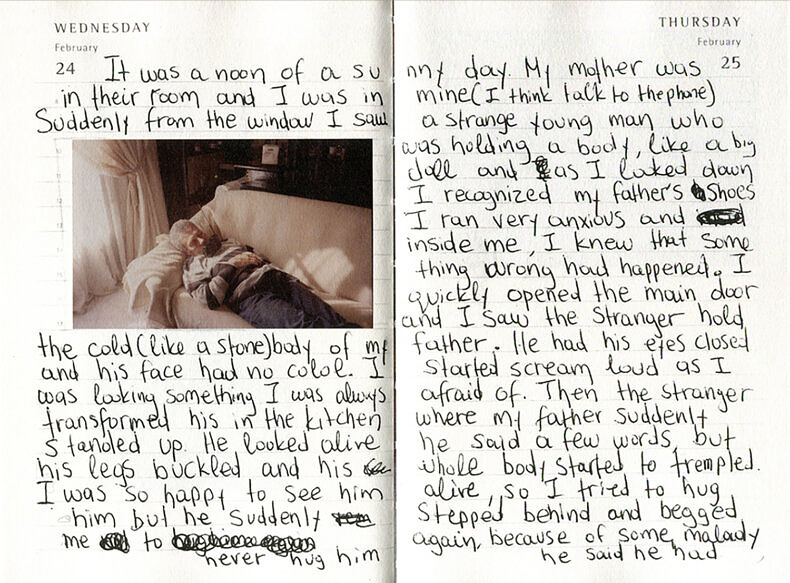 WEDNESDAY
February
24
THURSDAY
February
25
It was a noon of a sunny day. My mother was
in their room and I was in mine(I think talk to the phone)
Suddenly from the window I saw a strange young man who
was holding a body, like a big
doll and as I looked down
I recognized my father's shoes
I ran very anxious and
inside me, I knew that some
thing wrong had happened. I
quickly opened the main door
and I saw the stranger hold
the cold(like a stone)body of my father. He had his eyes closed
and his face had no color. I started scream loud as I
was looking something I was always afraid of. Then the stranger
transformed his in the kitchen where my father suddenly
standed up. He looked alive he said a few words, but
his legs buckled and his whole body started to trempled.
I was so happy to see him alive, so I tried to hug
him but he suddenly stepped behind and begged
me to
never hug him
again, because of some malady
he said he had